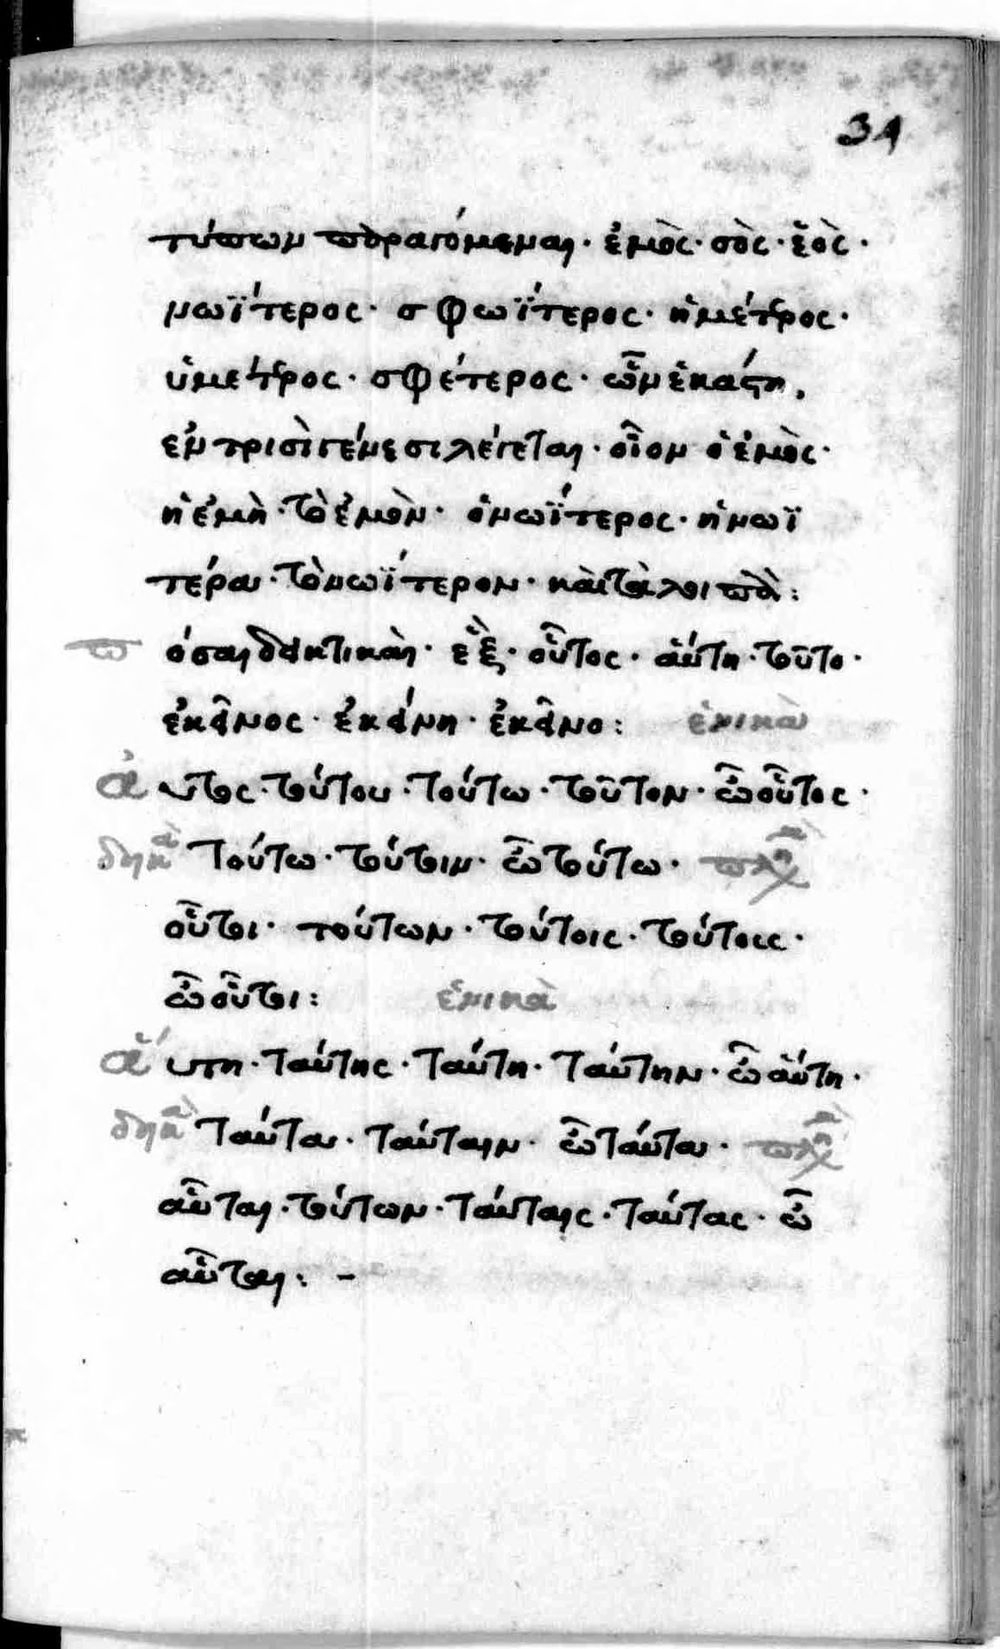 34
τύπων παραγόμεναι· ἐμὸς· σὸς· ἑὸς·
νωΐτερος· σφωΐτερος· ἡμέτερος·
ὑμέτερος· σφέτερος· ὧν ἑκάστη,
ἐν τρισὶ γένεσι λέγεται· οἷον ὁ ἐμὸς·
ἡ ἐμὴ· τὸ ἐμὸν· ὁ νωΐτερος· ἡ νωϊ
τέρα· τὸ νωΐτερον· καὶ τὰ λοιπὰ:
πόσαι δεικτικαὶ· ἓξ· οὗτος· αὕτη· τοῦτο·
ἐκεῖνος· ἐκείνη· ἐκεῖνο: ἑνικὰ
οὗτος· τούτου· τούτω· τοῦτον· ὦ οὗτος·
δυικὰ τούτω· τούτοιν· ὦ τούτω· πληθ
οὗτοι· τούτων· τούτοις· τούτους·
ὦ οὗτοι: ἑνικὰ
αὕτη· ταύτης· ταύτη· ταύτην· ὦ αὕτη·
δυικὰ ταύτα· ταύταιν· ὦ ταύτα· πληθ
αὗται· τούτων· ταύταις· ταύτας· ὦ
αὗται: -